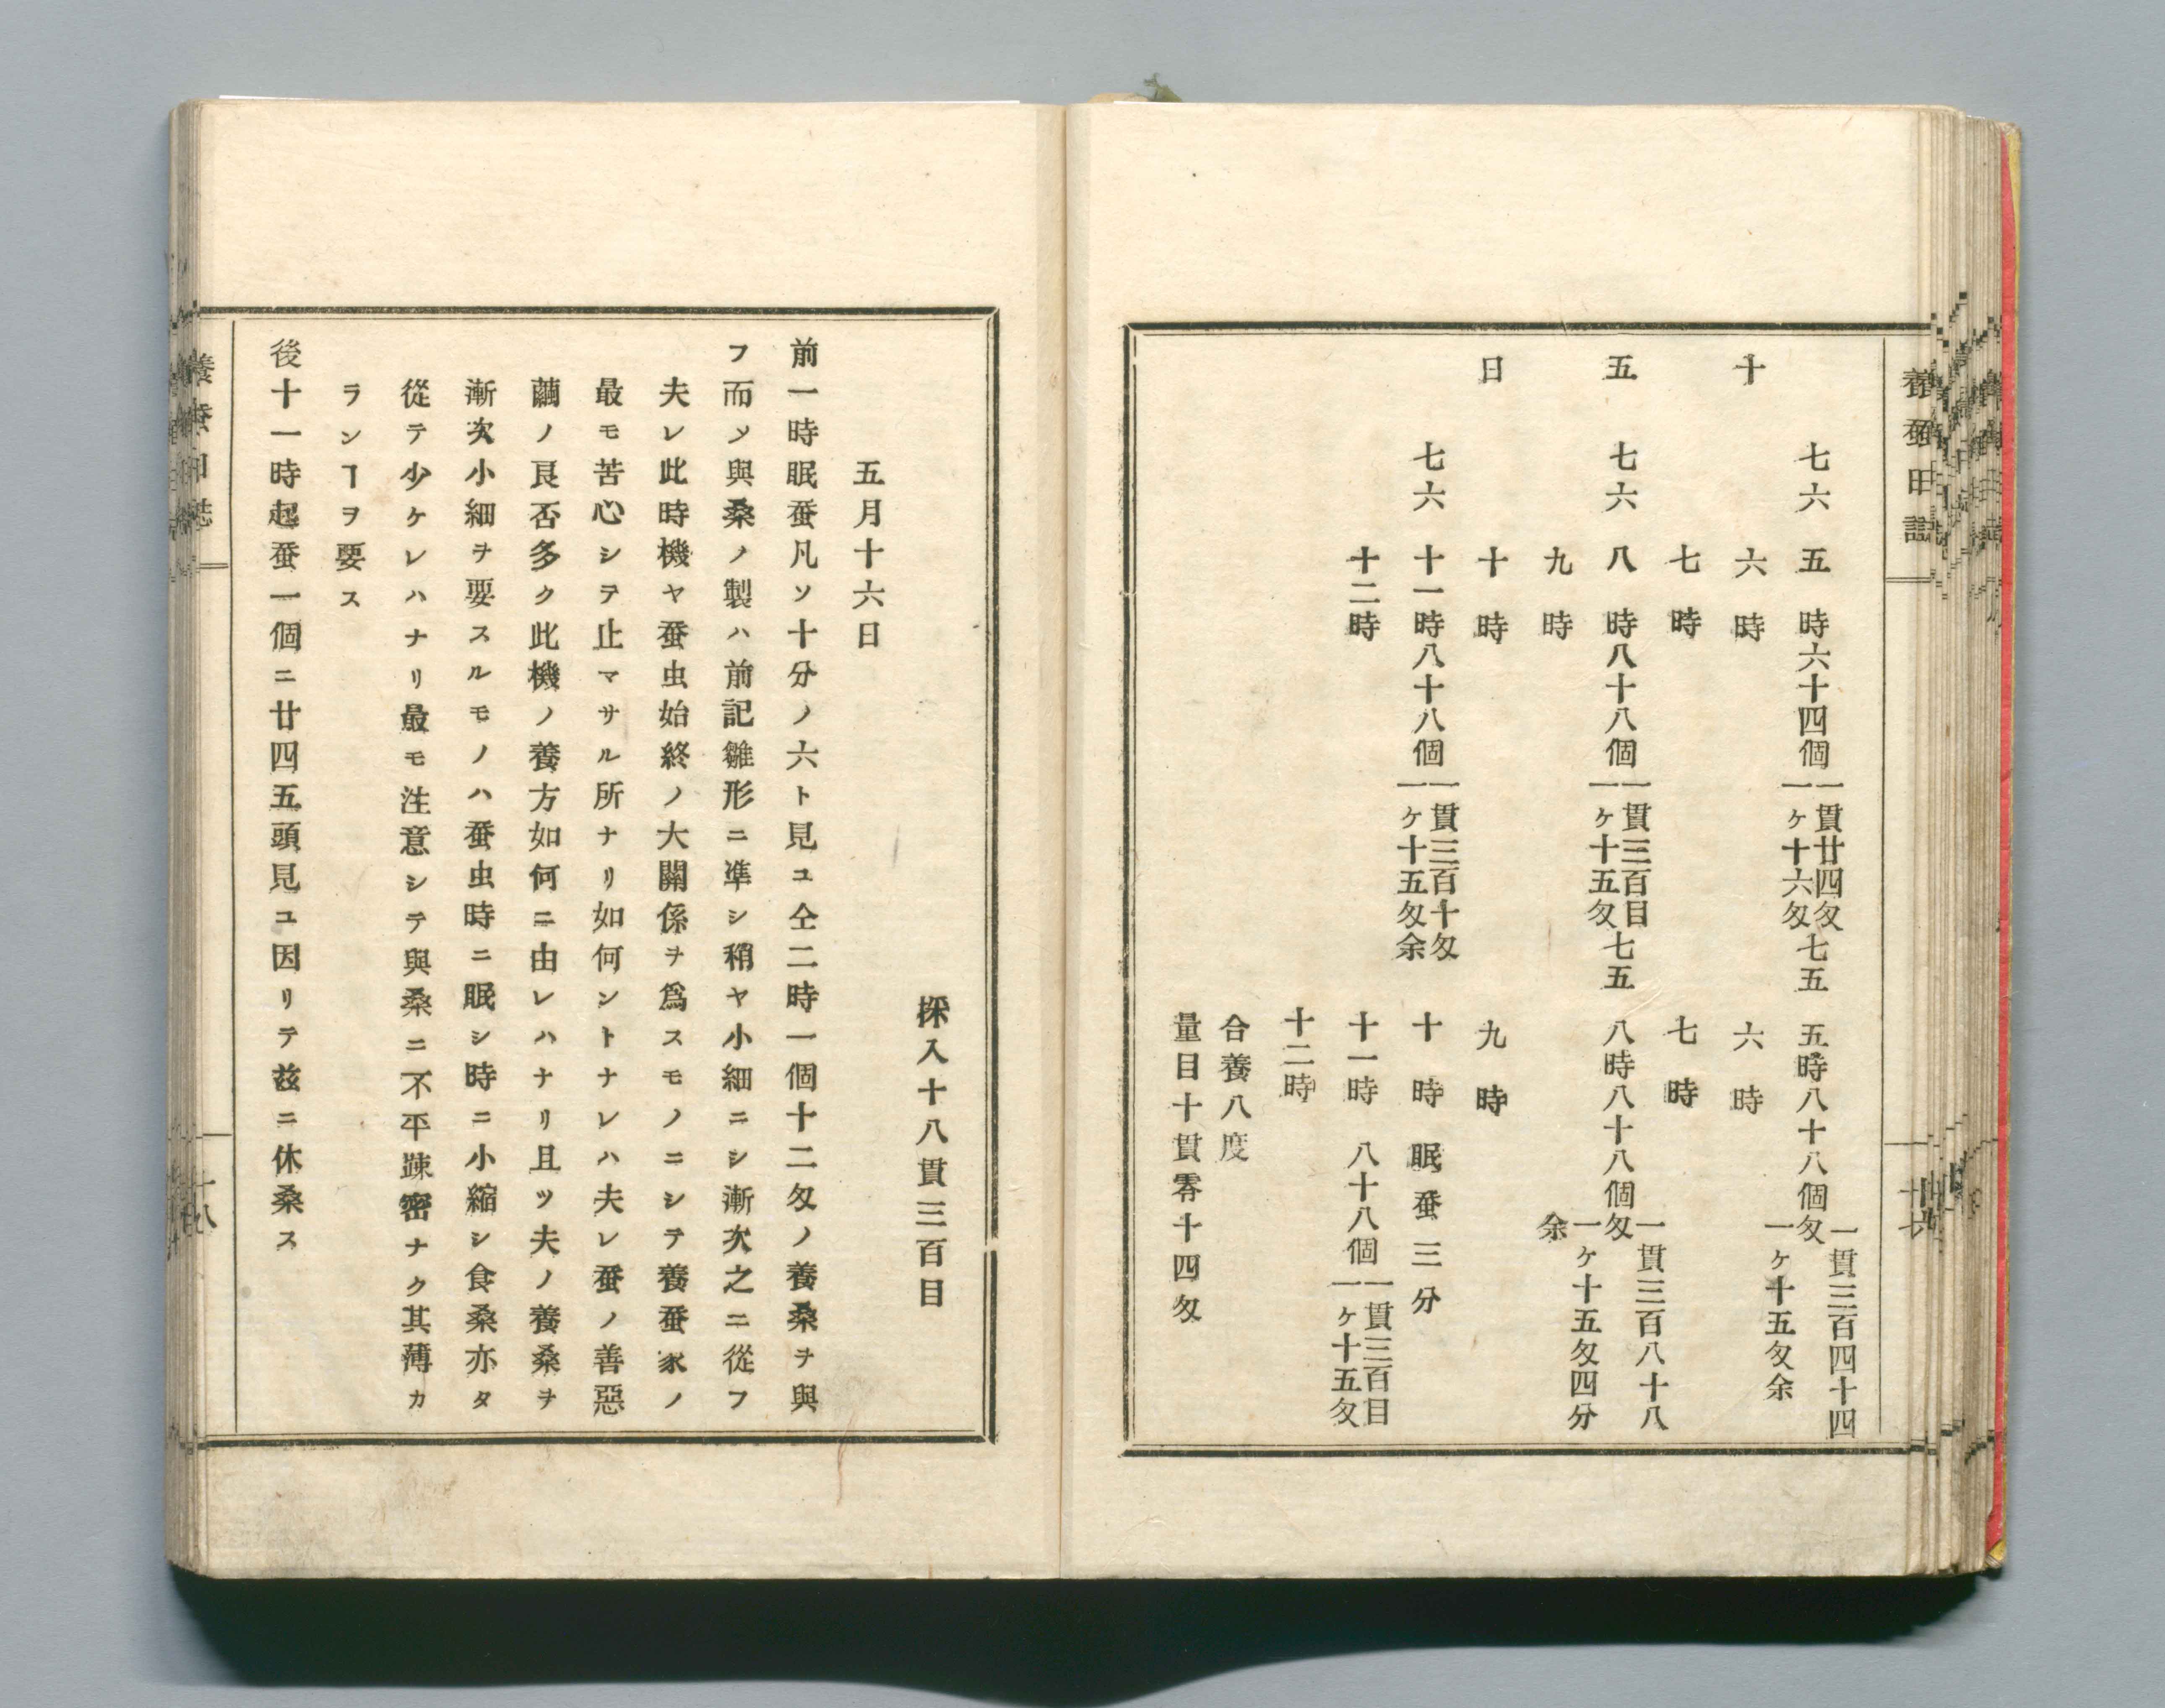 養蚕日誌
十七
十　五　日
七六　五　時六十四個一貫廿四匁一ヶ十六匁七五　五時八十八個一貫三百四十四匁一ヶ十五匁余
六　時　六　時
七　時　七　時
七六　八　時八十八個一貫三百目一ヶ十五匁七五　八時八十八個一貫三百八十八匁一ヶ十五匁四分余
九　時
十　時　九　時
七六　十一時八十八個一貫三百十匁一ヶ十五匁余　十　時　眠蚕三分
十二時　十一時　八十八個一貫三百目一ヶ十五匁
十二時
合養八度
量目十貫零十四匁
採入十八貫三百目
五月十六日
前一時眠蚕凡ソ十分ノ六ト見ユ仝二時一個十二匁ノ養桑ヲ與
フ而〆與桑ノ製ハ前記雛形ニ準シ稍ヤ小細ニシ漸次之ニ從フ
夫レ此時機ヤ蚕虫始終ノ大關係ヲ爲スモノニシテ養蚕家ノ
最モ苦心シテ止マサル所ナリ如何ントナレハ夫レ蚕ノ善惡
繭ノ良否多ク此機ノ養方如何ニ由レハナリ且ツ夫ノ養桑ヲ
漸次小細ヲ要スルモノハ蚕虫時ニ眠シ時ニ小縮シ食桑亦タ
從テ少ケレハナリ最モ注意シテ與桑ニ不平踈密ナク其薄カ
ランヿヲ要ス
後十一時起蚕一個ニ廿四五頭見ユ因リテ茲ニ休桑ス
養蚕日誌
十八